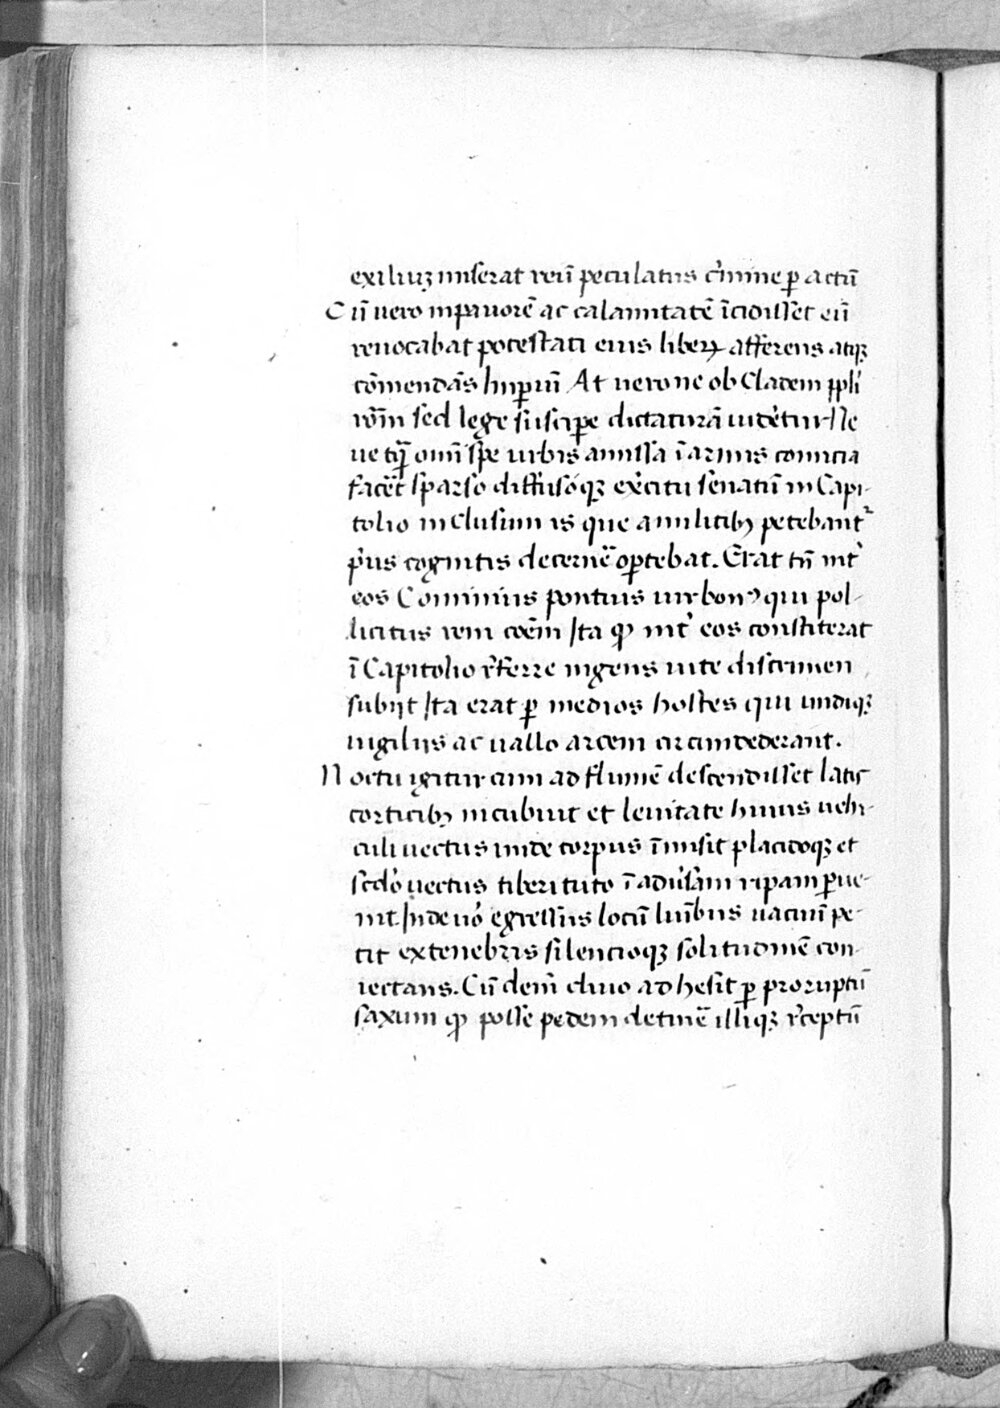 exiliuꝫ miserat reũ peculatus c̾imine ꝑ actũ
Cũ vero in pavorẽ ac calamitatẽ ĩcidisset eũ
revocabat potestati eius liberꝫ afferens atqꝫ
cõmendãs Imꝑiũ At vero ne ob Cladem ppli
rom̃ sed lege suscipe dictaturã videt̾tur Ne
ve tꝗ̃ omĩ spe urbis amissa ĩ armis comicia
facẽt sparso diffusoqꝫ ex̾citu senatũ in Capi-
tolio inclusum is que a militibꝫ petebant᷑
p̾us cognitis decernẽ oꝑtebat. Erat tũ int̾
eos Cominius pontius vir bonꝰ qui pol-
licitus rem coẽm Ita ꝙ int̾ eos constiterat
ĩ Capitolio r̾ferre ingens vite discrimen
subijt Ita erat ꝑ medios hostes qui undiqꝫ
vigilijs ac vallo arcem circumdederant.
Noctu igitur cum ad flumẽ descendisset latis
corticibꝫ incubuit et levitate huius vehi-
culi vectus inde corpus ĩmisit placidoqꝫ et
sed̾o vectus tiberi tuto ĩ adv̾sam ripam ꝑve-
nit. Inde v̾o egressus locũ luĩbus vacuũ pe-
tit ex tenebris silencioqꝫ solitudinẽ con-
iectans. Cũ dem̃ clivo ad hesit ꝑ proruptũ
saxum ꝙ posse pedem detinẽ illiqꝫ r̾ceptũ